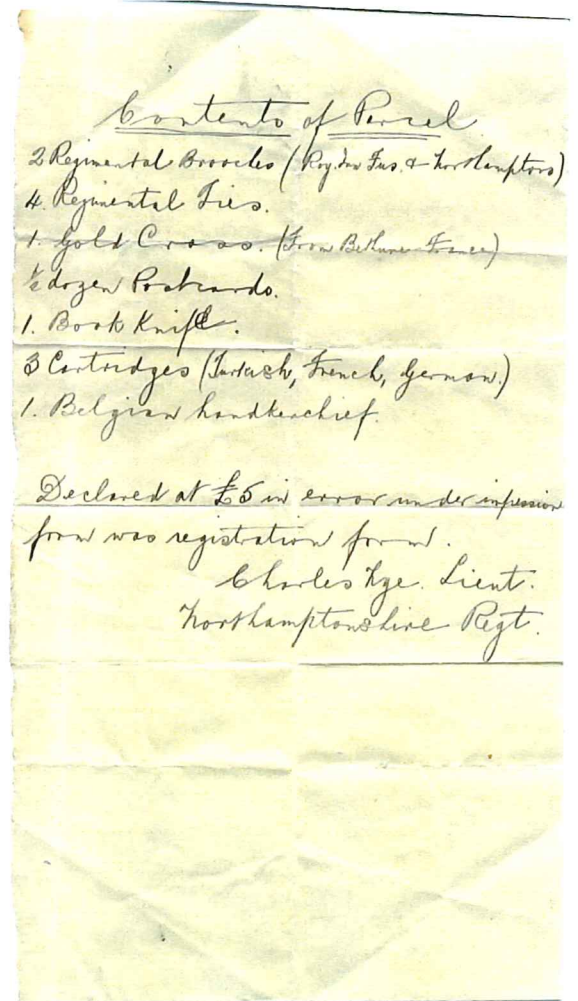 Contents of Parcel
2 Regimental Brooches (Roy. Inn Fus. & Northamptons)
4. Regimental Ties.
1. Gold Cross. (From Bethune France)
½ dozen Postcards.
1. Book Knife.
3 Cartridges (Turkish, French, German.)
1. Belgian handkerchief.
Declared at £5 in error under impession
form was registration form.
Charles Lieut.
Northamptonshire Regt.